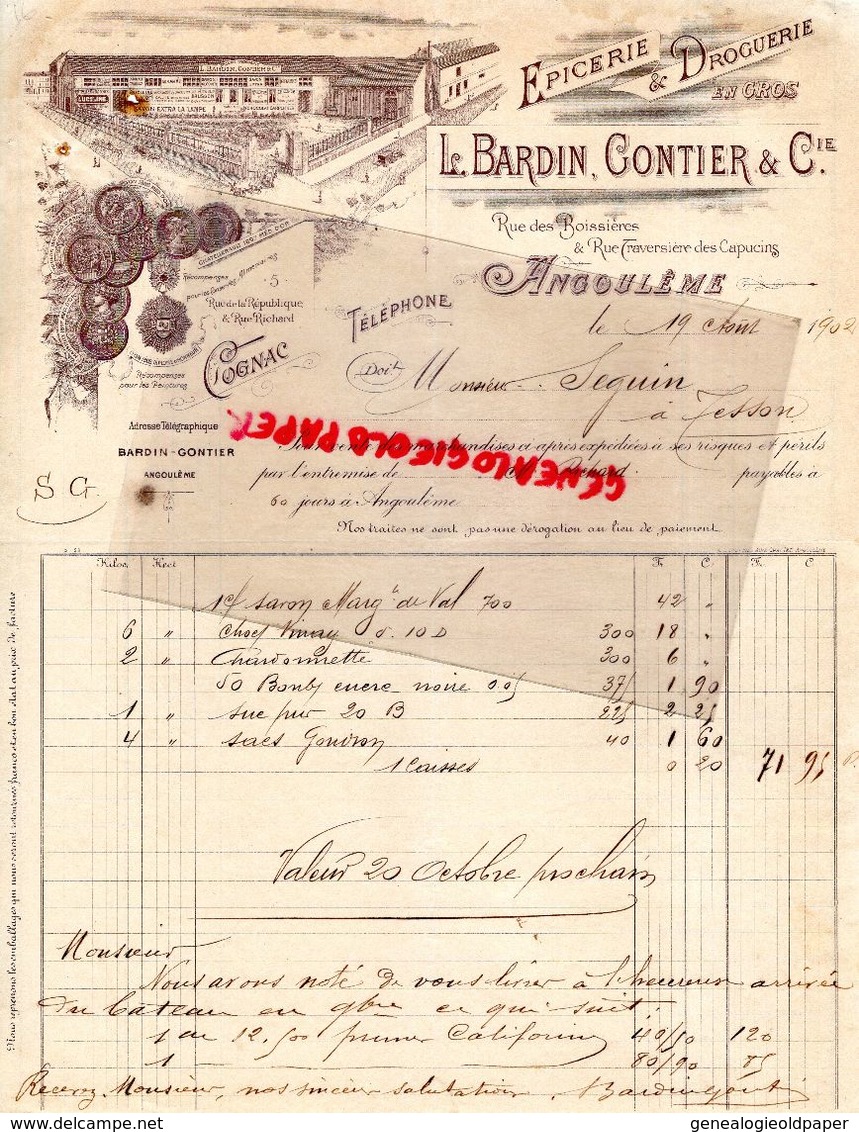 L. BARDIN, GONTIER & Cie
LUCILINE
SAVON EXTRA LA LAMPE
EPICERIE & DROGUERIE
EN GROS
L. BARDIN, GONTIER & CIE.
Rue des Boissières
& Rue Traversière des Capucins
ANGOULÊME
CHATEAUROUX 1897 MED. D'OR
Récompenses
pour les Conserves Alimentaires
5
Rue de la République
& Rue Richard
TÉLÉPHONE
COGNAC
Récompenses
pour les Peintures
le 19 Août 1902
Doit Monsieur Seguin
à Tesson
Adresse Télégraphique
BARDIN-GONTIER
ANGOULÊME
S G
Pour vente des marchandises ci après expédiées à ses risques et périls
par l'entremise de Richard payables à
60 jours à Angoulême
Nos traites ne sont pas une dérogation au lieu de paiement
GENEALOGIEOLDPAPER
Kilos Hect F. C. F. C
savon Marg. de Val 700 42 "
6 " Choc Vinay 10 D 300 18 "
2 " Chardonnette 300 6 "
50 encre noire 0.05 375 1 90
1 " suc pur 20 B 225 2 25
4 " sacs Goudron 40 1 60
1 Caisses 0 20 71 95
Valeur 20 Octobre prochain
Monsieur
Nous avons noté de vous livrer à l'heureuse arrivée
du bateau en 9bre ce qui suit:
1 de 12.500 prunes Californie 40/50 120
1 80/90 85
Recevez, Monsieur, nos sincères salutations. Bardin Gontier
Nous reprenons les emballages qui nous seront retournés franco et en bon état au prix de facture
genealogieoldpaper